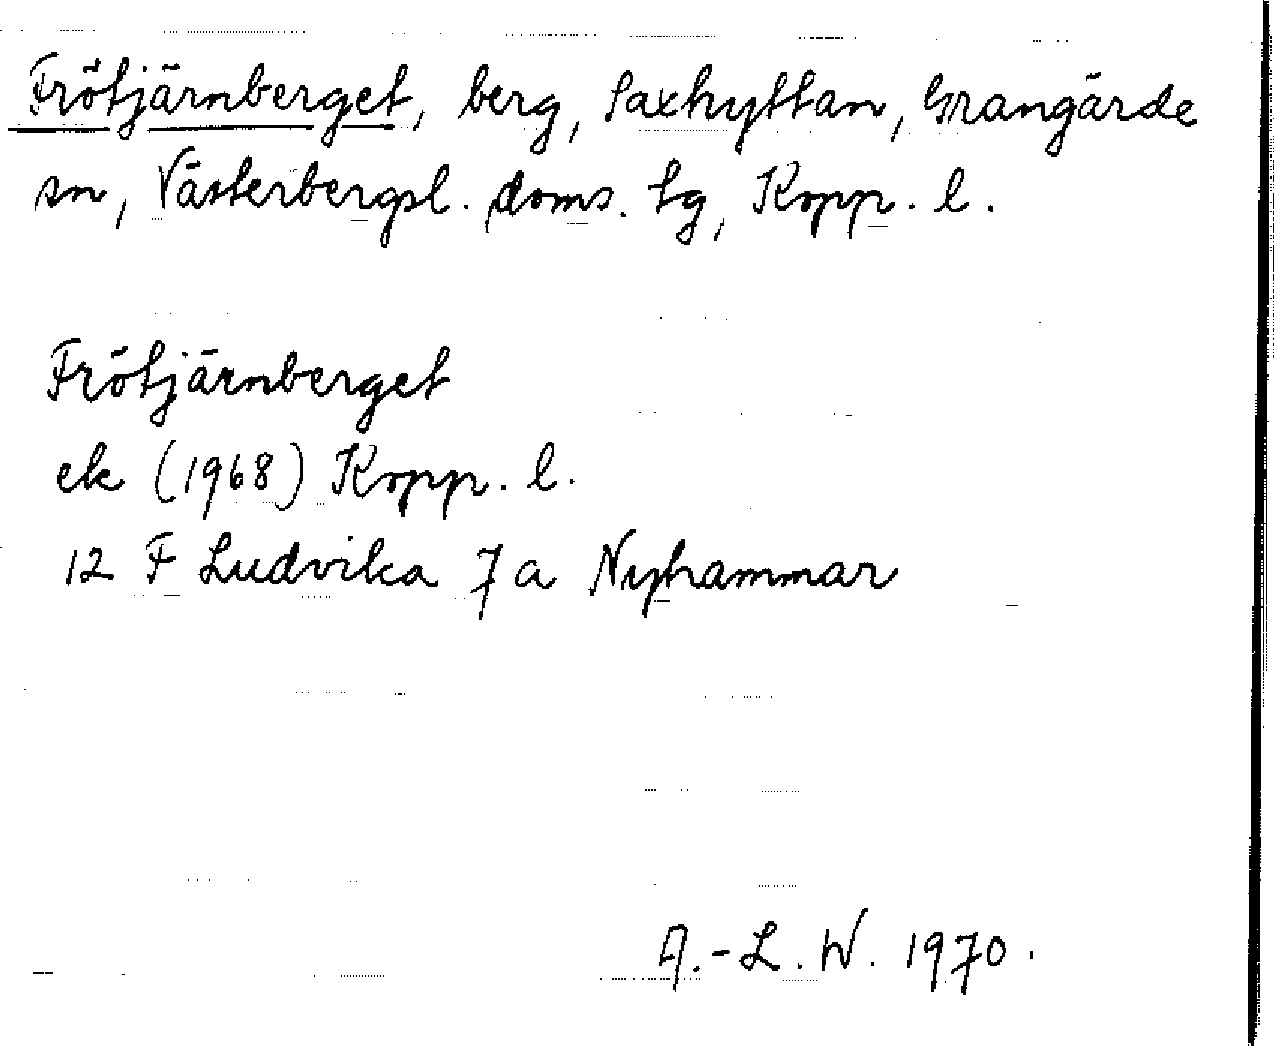 Frötjärnberget, berg, Saxhyttan, Grangärde
sn, Västerbergsl. doms. tg, Kopp. l.
Frötjärnberget
ek (1968) Kopp. l.
12 F Ludvika 7 a Nyhammar
A.-L. W. 1970.